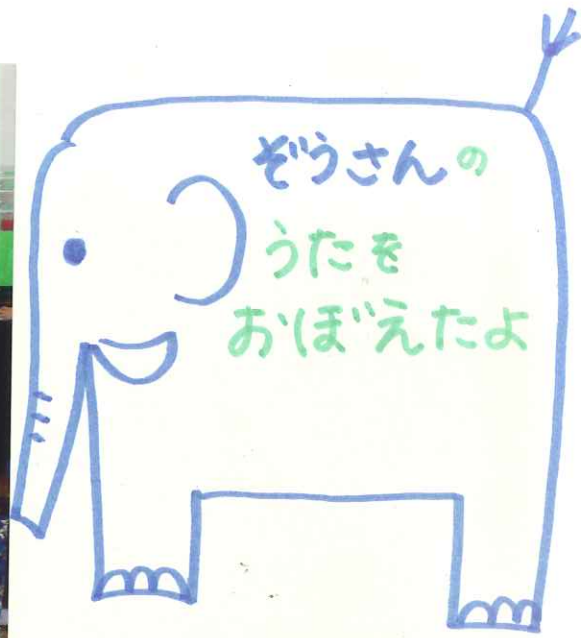 ぞうさんの
うたを
おぼえたよ